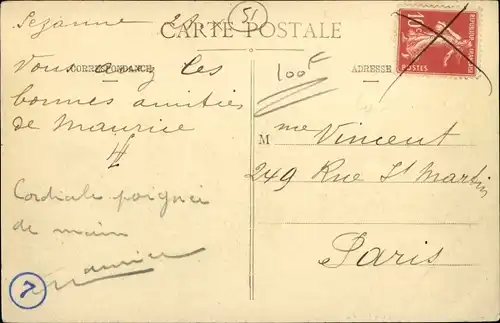 Sézanne
51
CARTE POSTALE
10c
POSTES
CORRESPONDANCE
ADRESSE
100 F
Vous les
bonnes amitiés
de Maurice
Cordiale poignée
de main
Maurice
7
M me Vincent
249 Rue St Martin
Paris